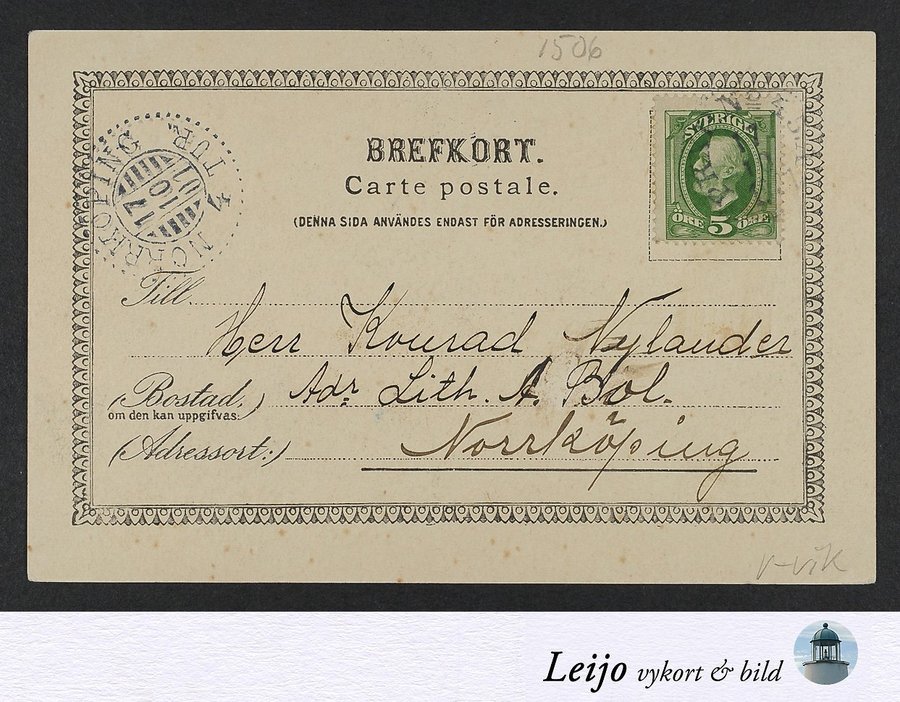 1506
BREFKORT.
Carte postale.
(DENNA SIDA ANVÄNDES ENDAST FÖR ADRESSERINGEN.)
SVERIGE
ÖRE 5 ÖRE
NORRKÖPING
17
10
01
4 TUR.
Till
Herr Konrad Nylander
(Bostad,) Adr. Lith. A. Bol.
om den kan uppgifvas:
(Adressort:) Norrköping
v-vik
Leijo vykort & bild